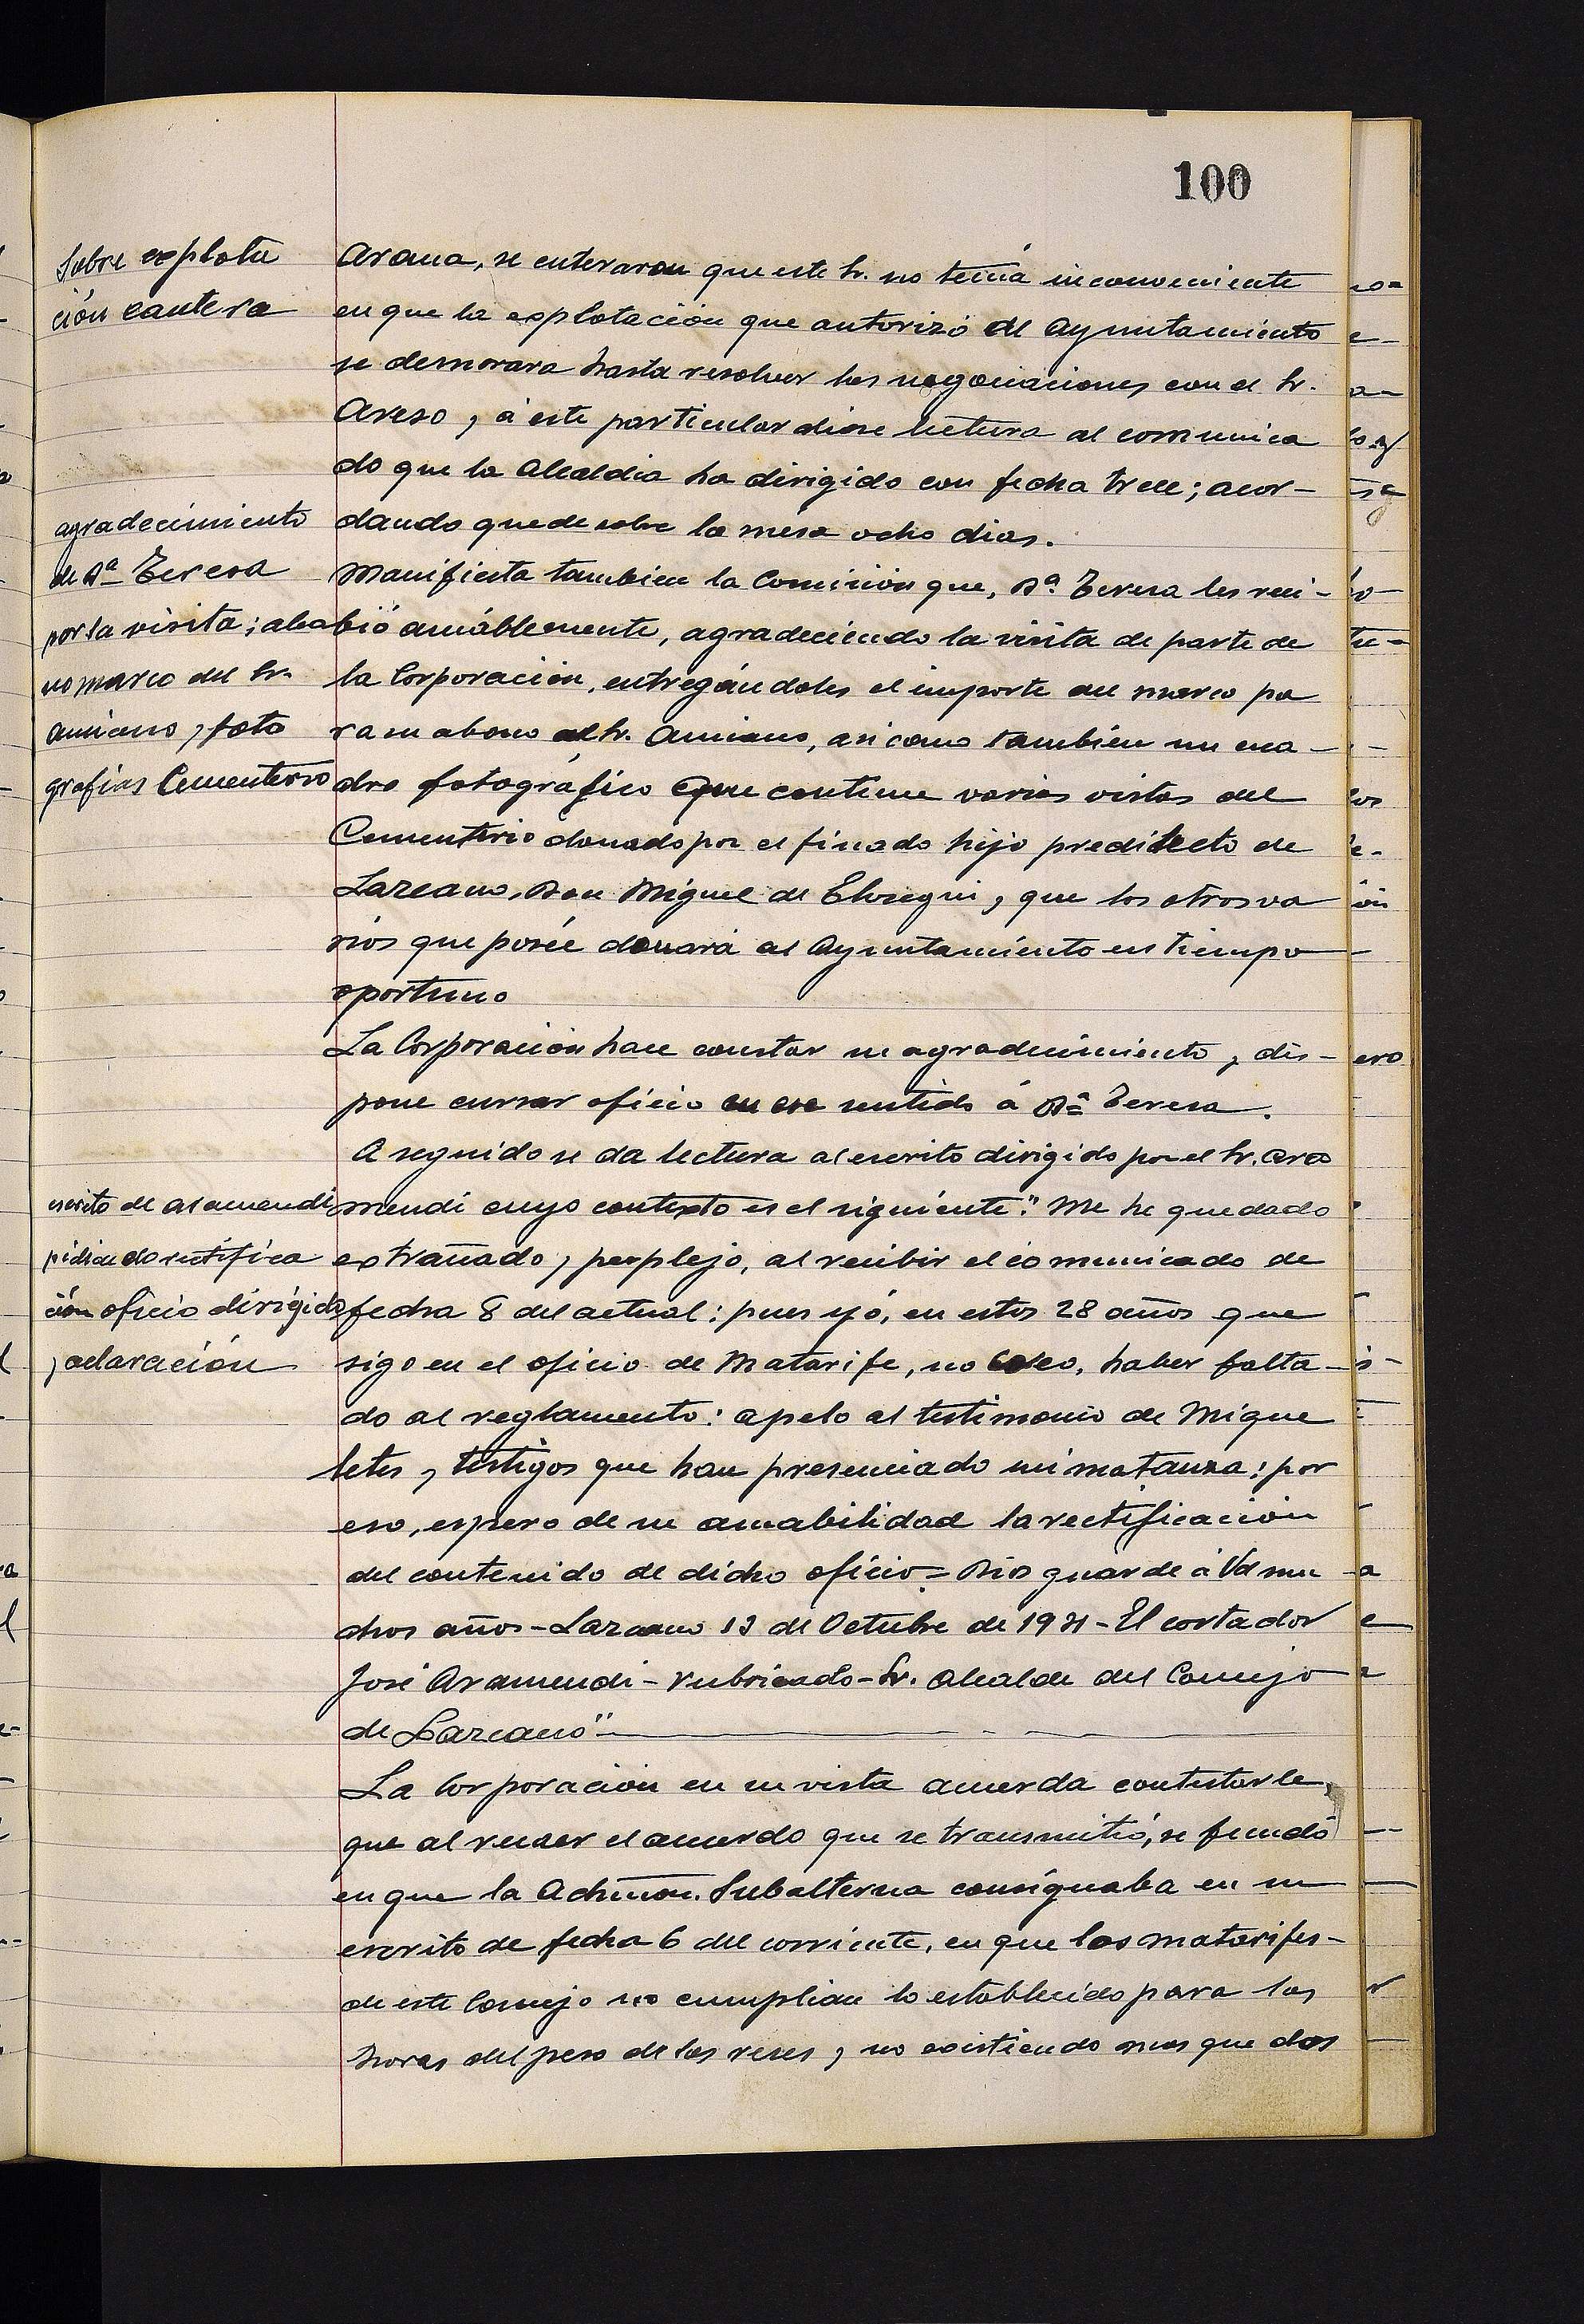 100
Sobre explota
ción cantera
Arana, se enteraron que este Sr. no tenía inconveniente
en que la explotación que autorizó el Ayuntamiento
se demorara hasta resolver las negociaciones con el Sr.
Areso, á este particular dióse lectura al comunica
do que la Alcaldia ha dirigido con fecha trece; acor-
dando quede sobre la mesa ocho dias.
agradecimiento
de Dª Teresa
por la visita; abo
no marco del Sr.
Amiano, foto
grafias Cementerio
Manifiesta tambien la Comisión que, Dª. Teresa les reci-
bió amáblemente, agradeciendo la visita de parte de
la Corporación, entregándoles el importe del marco pa
ra su abono al Sr. Amiano, asi como tambien un cua-
dro fotográfico que contiene varias vistas del
Cementerio donado por el finado hijo predilecto de
Lazcano, Don Miguel de Elosegui, que los otros va
rios que poseé donará al Ayuntamiento en tiempo
oportuno
La Corporación hace constar su agradecimiento, dis-
pone cursar oficio en ese sentido á Dª Teresa.
A seguido se da lectura al escrito dirigido por el Sr. Ara
escrito de Aramendi
pidiendo rectifica
ción oficio dirigido
, aclaración
mendi cuyo contexto es el siguiente: "Me he quedado
extrañado, perplejo, al recibir el comunicado de
fecha 8 del actual: pues yó, en estos 28 años que
sigo en el oficio de Matarife, no creo, haber falta-
do al reglamento: apelo al testimonio de Migue
letes, testigos que han presenciado mi matanza: por
eso, espero de su amabilidad la rectificación
del contenido de dicho oficio = Dios guarde á Vd mu
chos años - Lazcano 13 de Octubre de 1931 - El cortador
José Aramendi - rubricado - Sr. Alcalde del Concejo
de Lazcano"
La Corporación en su vista acuerda contestarle,
que al recaer el acuerdo que se transmitió, se fundó
en que la Admón. Subalterna consignaba en su
escrito de fecha 6 del corriente, en que los matarifes-
de este Concejo no cumplian lo establecido para las
horas del peso de las reses, no existiendo mas que dos